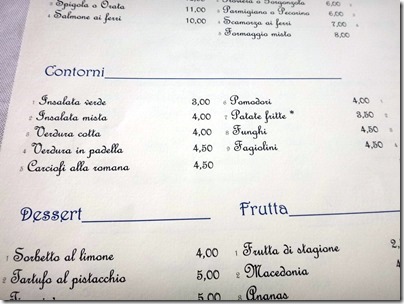 2 Spigola o Orata 11,00
4 Salmone ai ferri 10,00
4 Parmigiano o Pecorino 6,00
4 Scamorza ai ferri 7,00
5 Formaggio misto 8,00
Contorni
1 Insalata verde 3,00
2 Insalata mista 4,00
3 Verdura cotta 4,00
4 Verdura in padella 4,50
5 Carciofi alla romana 4,50
6 Pomodori 4,00
7 Patate fritte * 3,50
8 Funghi 4,50
9 Fagiolini 4,50
Dessert
1 Sorbetto al limone 4,00
2 Tartufo al pistacchio 5,00
5,00
Frutta
1 Frutta di stagione
2 Macedonia
3 Ananas